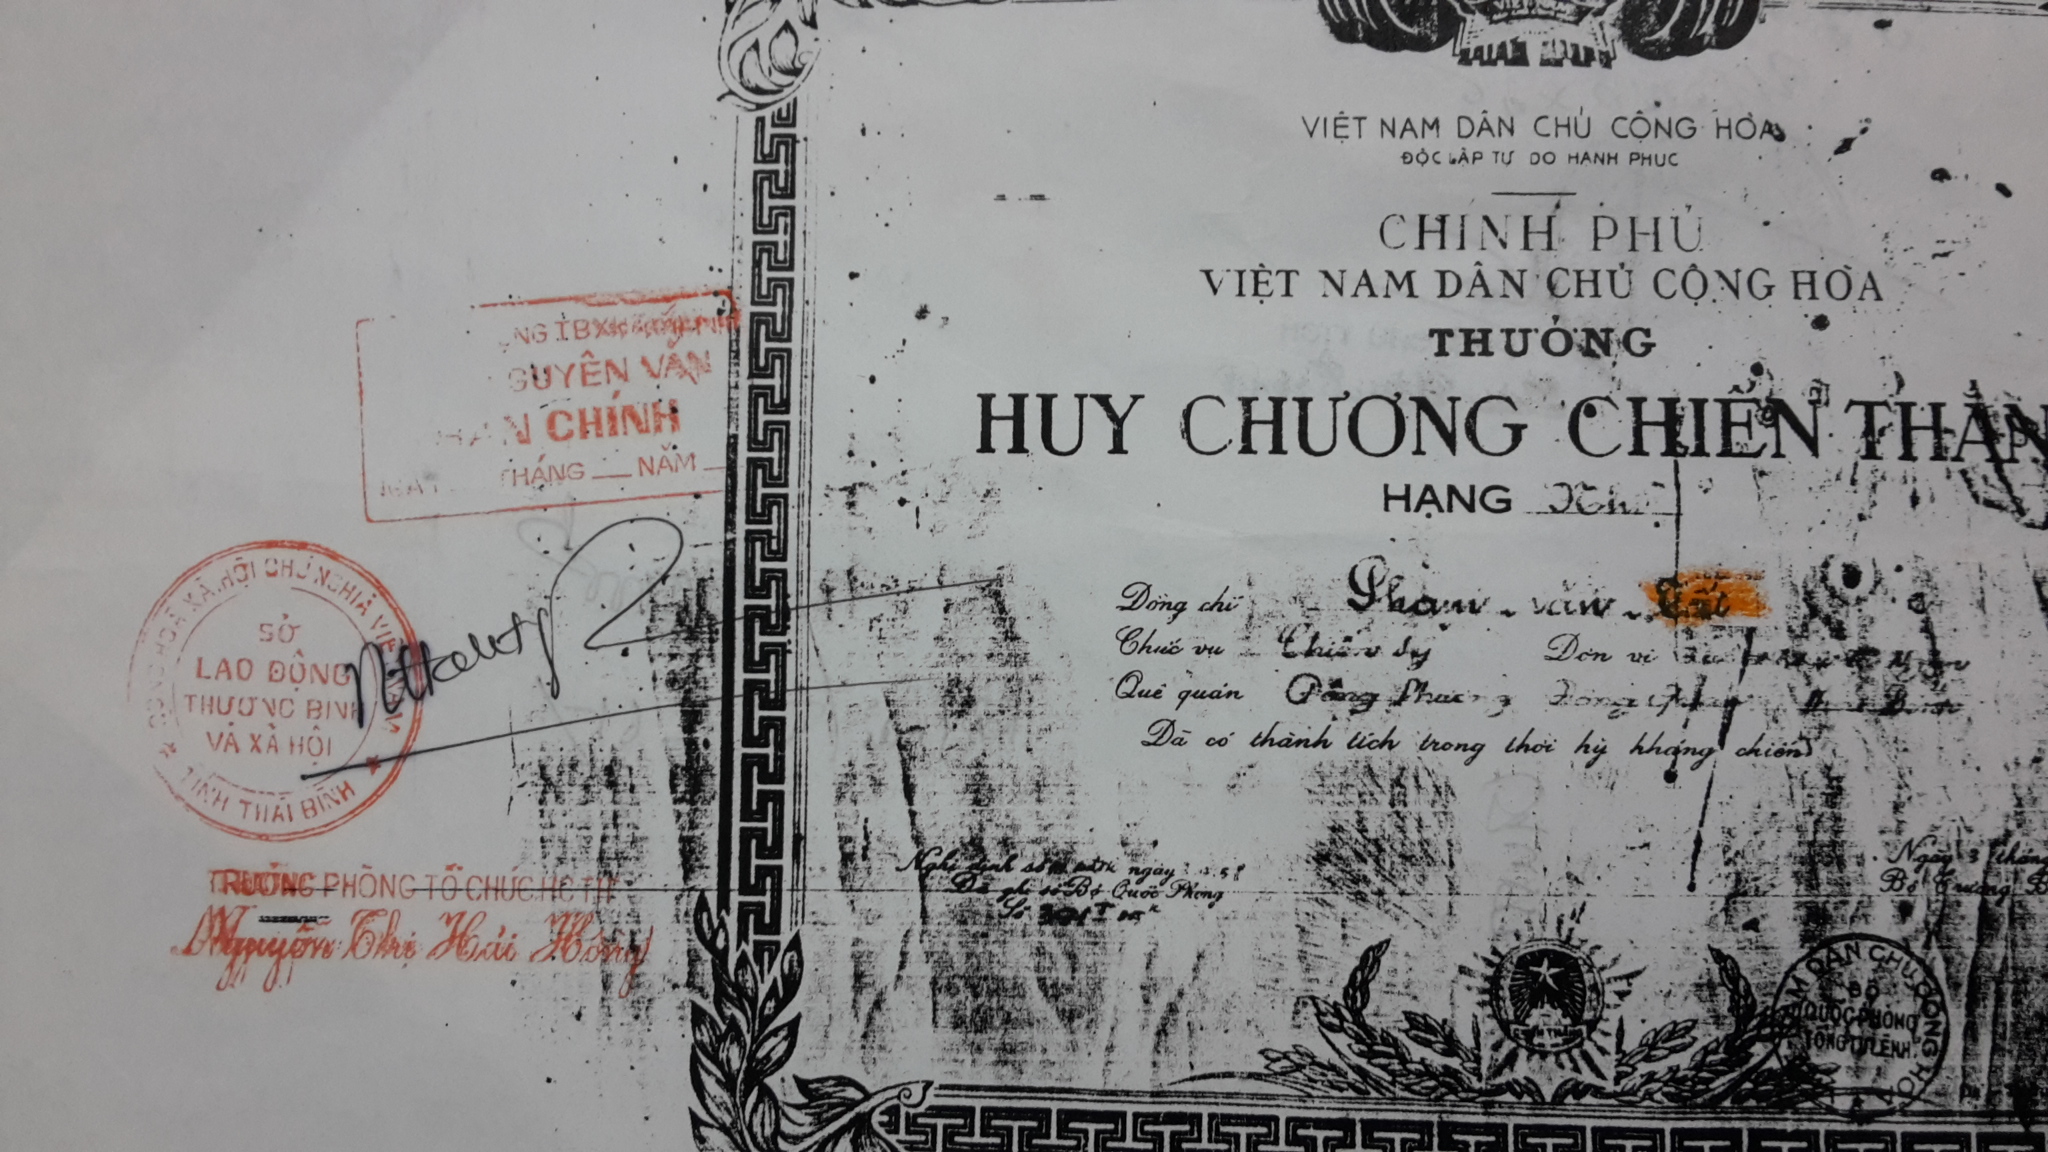 VIỆT NAM DÂN CHỦ CỘNG HÒA
ĐỘC LẬP TỰ DO HẠNH PHÚC
CHÍNH PHỦ
VIỆT NAM DÂN CHỦ CỘNG HÒA
THƯỞNG
HUY CHƯƠNG CHIẾN THẮN
HẠNG
Đồng chí Phạm - văn -
Chức vụ Chiến sỹ Đơn vị
Quê quán Đông Phương Đông
Đã có thành tích trong thời kỳ kháng chiến
Nghị định số ngày
Đã ghi sổ Bộ Quốc Phòng
Số
Ngày 3 tháng
Bộ Trưởng B
BỘ
QUỐC PHÒNG
TỔNG TƯ LỆNH
GUYÊN VĂN
CHÍNH
THÁNG __ NĂM __
CỘNG HOÀ XÃ HỘI CHỦ NGHĨA VIỆT NAM
SỞ
LAO ĐỘNG
THƯƠNG BINH
VÀ XÃ HỘI
TỈNH THÁI BÌNH
TRƯỞNG PHÒNG TỔ CHỨC HC TH
Nguyễn Thị Hải Hồng